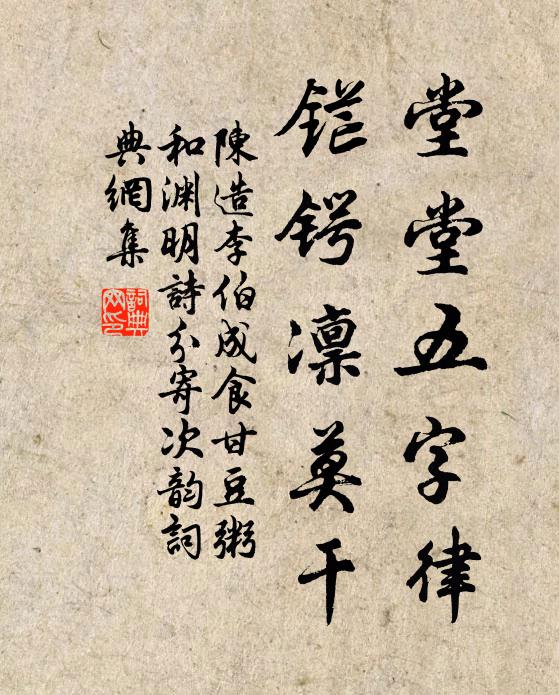 堂堂五字律
鋩鍔凛莫干
陳造李伯成食甘豆粥
和渊明詩分寄次韵詞
典網集
詞典
网印